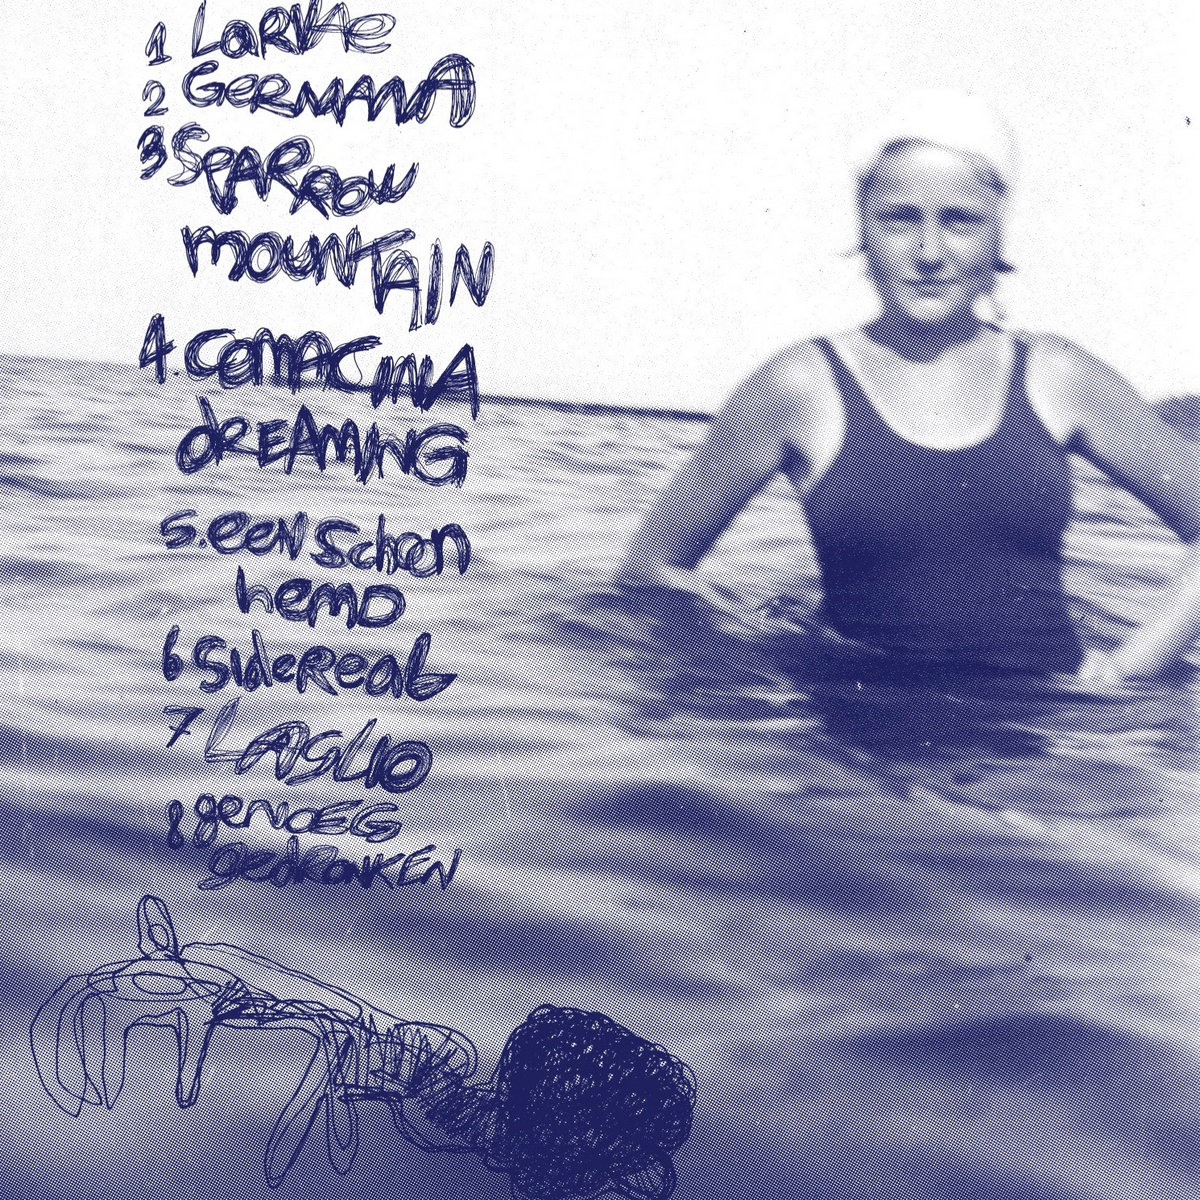 1 LaRVAe
2 GeRMANA
3 SPARROW
mOUNTAIN
4. COMACINA
dREAMING
5. een Schoon
hemD
6 SideReaL
7 LAGLIO
8 geNOEG
gedRoNKEN